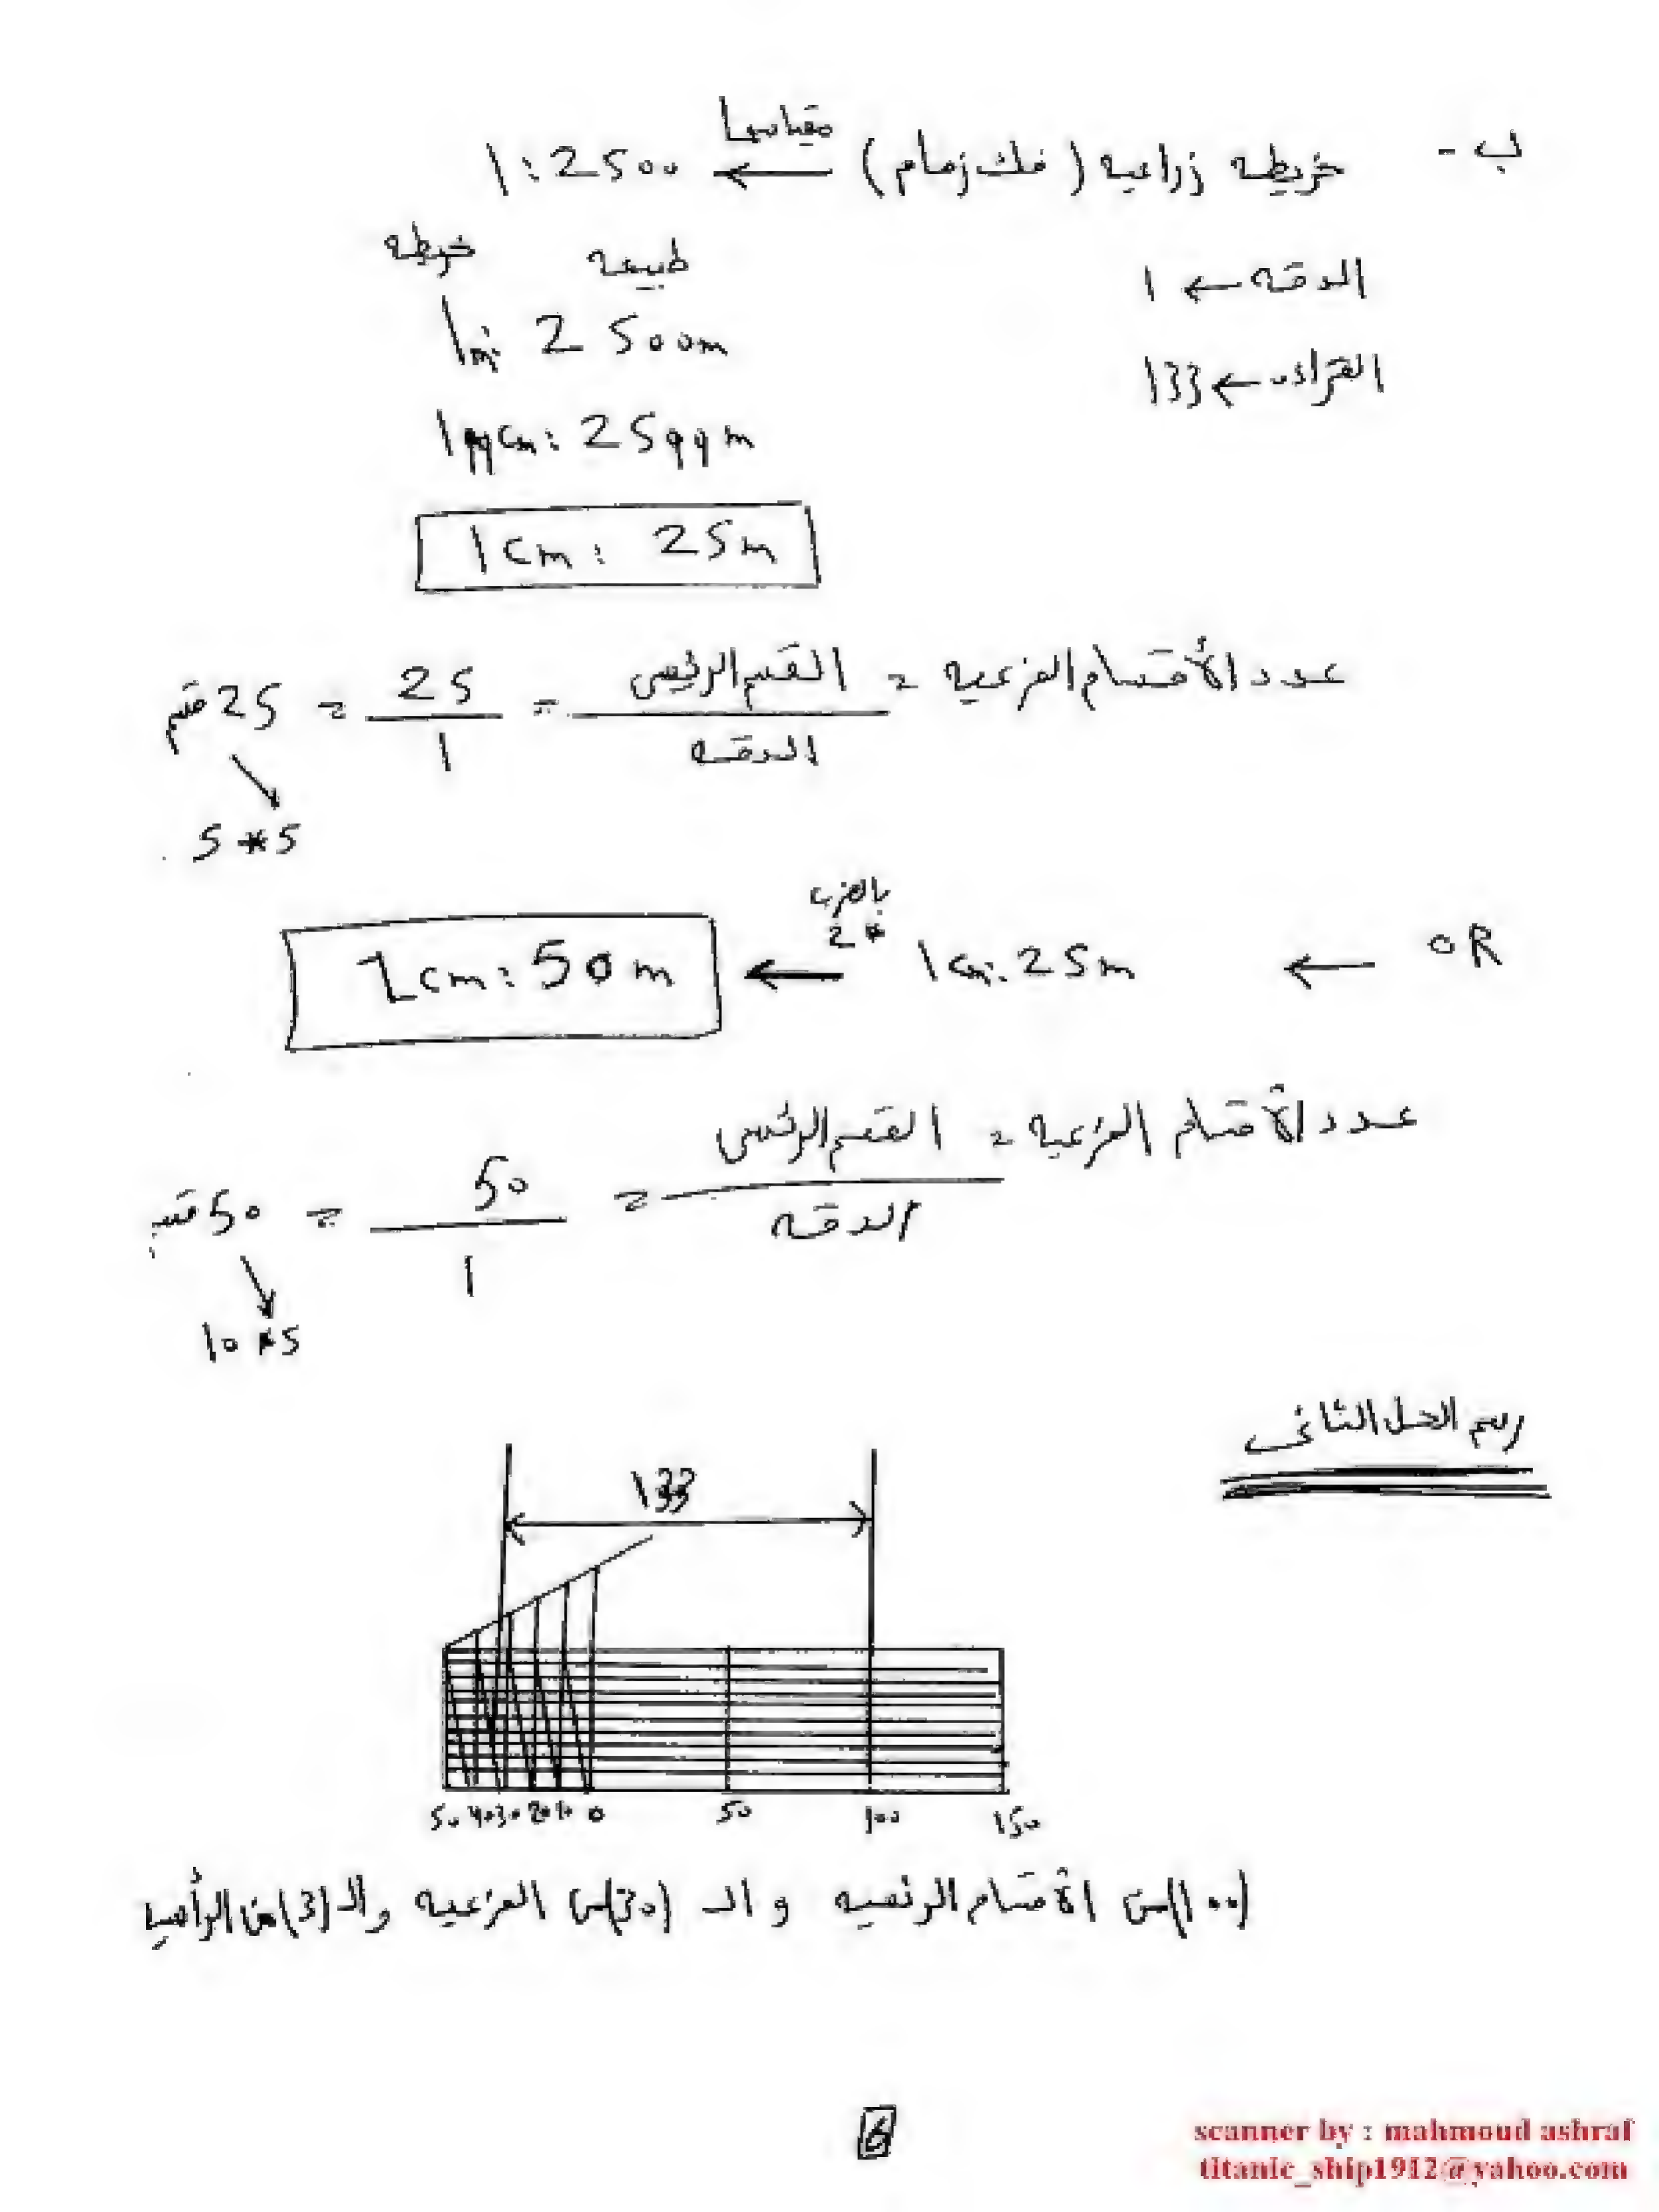 ب - خريطه زراعيه (فك زمام) ← مقياسها 1:2500
الدقه ← 1
القراءه ← 133
طبيعه خريطه
1m: 2500m
100cm: 2500m
1cm: 25m
عدد الأقسام الفرعيه = القسم الرئيسى / الدقه = 25 / 1 = 25 قسم
5*5
OR ← 1cm: 25m ← بالضرب *2 2cm: 50m
عدد الأقسام الفرعيه = القسم الرئيسى / الدقه = 50 / 1 = 50 قسم
10*5
رسم الحل الثانى
133
50 40 30 20 10 0 50 100 150
(100) من الأقسام الرئسيه و الـ (30) من الفرعيه والـ (3) من الرأسيا
6
scanner by : mahmoud ashraf
titanic_ship1912@yahoo.com